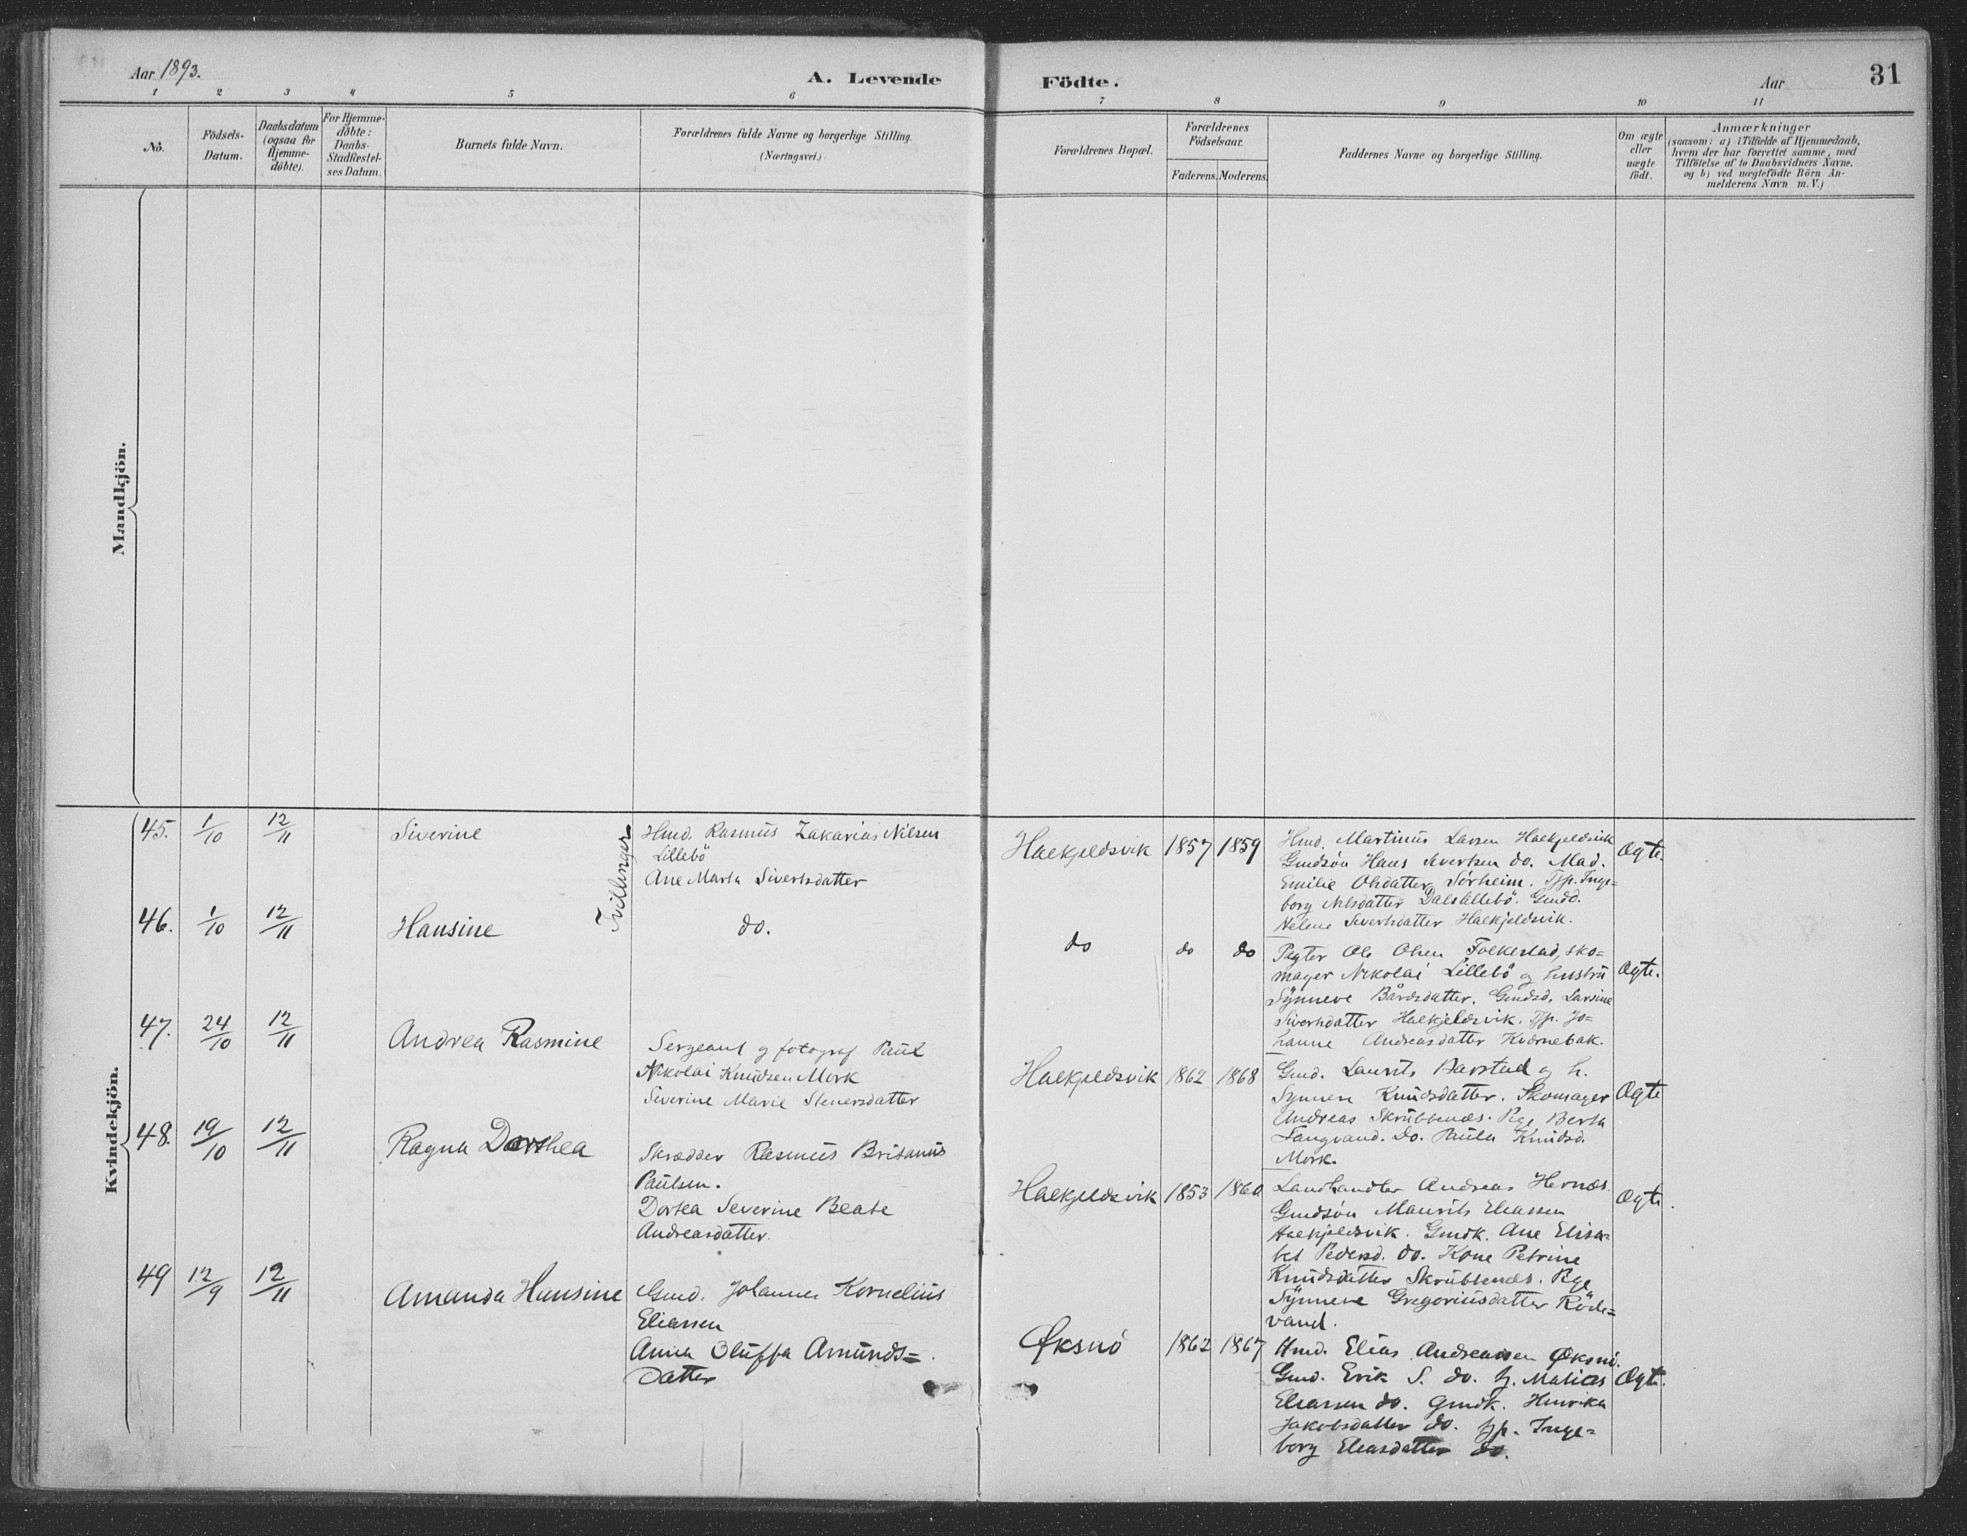 Aar 1893.
A. Levende Födte.
Aar
31
1 2 3 4 5 6 7 8 9 10 11
No.
Födsels-Datum.
Daabsdatum (ogsaa for Hjemme-döbte).
For Hjemme-döbte: Daabs-Stadfæstel-ses Datum.
Barnets fulde Navn.
Forældrenes fulde Navne og borgerlige Stilling.
(Næringsvei.)
Forældrenes Bopæl.
Forældrenes Födselsaar.
Faderens. Moderens.
Faddernes Navne og borgerlige Stilling.
Om ægte eller uægte födt.
Anmærkninger
(saasom: a) i Tilfælde af Hjemmedaab,
hvem der har forrettet samme, med
Tilföielse af to Daabsvidners Navne,
og b) ved uægtefödte Börn An-
melderens Navn m. V.)
Mandkjön.
Kvindekjön.
45. 1/10 12/11 Siverine
Tvillinger
Hmd. Rasmus Zakarias Nilsen
Lillebö
Ane Marta Sivertsdatter
Haekjeldsvik 1857 1859
Hmd. Martinus Larsen Haekjeldsvik
Gmdsön Hans Sivertsen do. Mad.
Emilie Olsdatter Sörheim. Tjp. Inge=
borg Nilsdatter Dalslillebö. Gmdd.
Helene Sivertsdatter Haekjeldsvik.
Ægte.
46. 1/10 12/11 Hansine
do.
do do do
Pagter Ole Olsen Folkestad, sko=
mager Nikolai Lillebö og hustru
Synneve Bårdsdatter. Gmdsd. Larsine
Sivertsdatter Haekjeldsvik. Tjp. Jo=
hanne Andreasdatter Kvernebak.
Ægte.
47. 24/10 12/11 Andrea Rasmine
Sergeant og fotograf Paul
Nikolai Knudsen Mork
Siverine Marie Stenersdatter
Haekjeldsvik 1862 1868
Gmd. Laurits Barstad og h.
Synneve Knudsdatter. Skomager
Andreas Skrubbenæs. Pge Berta
Langvand. Do. Paula Knudsd.
Mork.
Ægte
48. 19/10 12/11 Ragna Dorthea
Skrædder Rasmus Brisanus
Paulsen.
Dortea Severine Beate
Andreasdatter.
Haekjeldsvik 1853 1860
Landhandler Andreas Hernæs.
Gmdsön Maurits Eleasen
Haekjeldsvik. Gmdk. Ane Elisa=
bet Pedersd. do. Kone Petrine
Knudsdatter Skrubbenæs. Pge
Synneve Gregoriusdatter Röde=
vand.
Ægte.
49 12/9 12/11 Amanda Hansine
Gmd. Johannes Kornelius
Eliassen
Anna Oluffa Amunds=
datter
Øksnö 1862 1867
Hmd. Elias Andreassen Øksnö.
Gmd. Erik S. do. Y. Matias
Eliassen do. Gmdk. Henrika
Jakobsdatter do. Tjp. Inge=
borg Eleasdatter do.
Ægte.